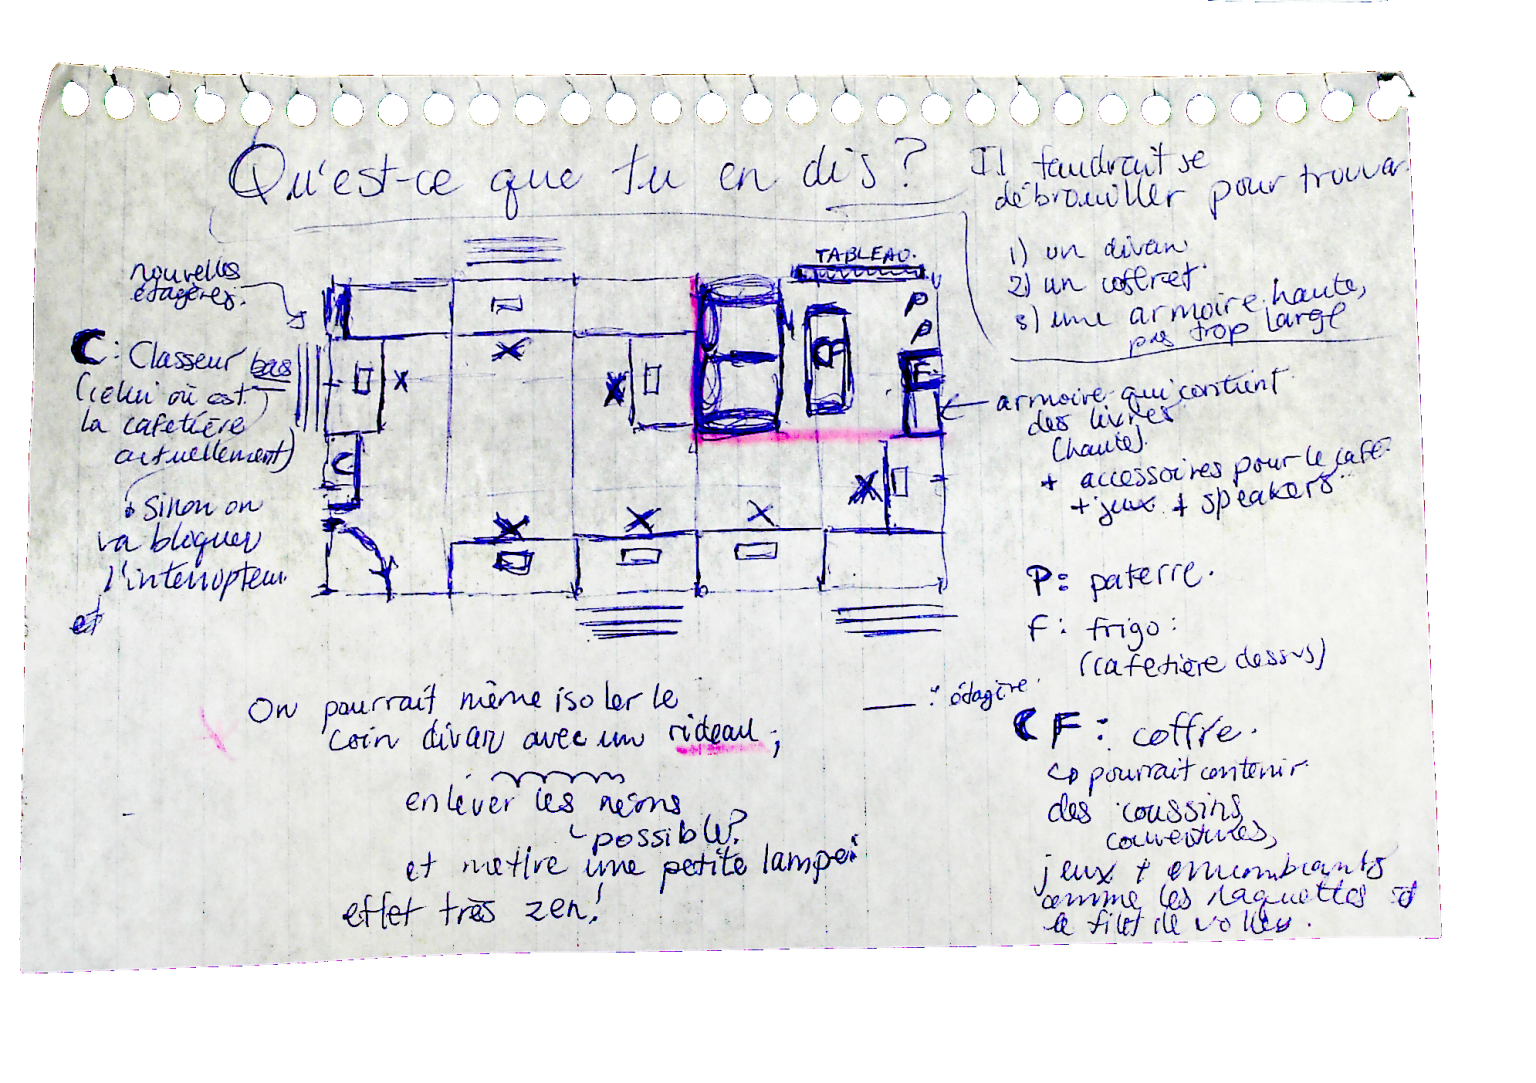 Qu'est-ce que tu en dis?
Il faudrait se
débrouiller pour trouver
1) un divan
2) un coffret
3) une armoire haute,
pas trop large
TABLEAU.
nouvelles
étagères.
C: Classeur bas
(celui où est
la cafetière
actuellement)
Sinon on
va bloquer
l'interrupteur
et
P
P
F
C
armoire qui contient
des livres
(haute)
+ accessoires pour le café
+ jeux + speakers
P: paterre.
F: frigo:
(cafetière dessus)
: étagère.
CF: coffre.
↳ pourrait contenir
des coussins,
couvertures,
jeux + encombrants
comme les raquettes et
le filet de volley.
On pourrait même isoler le
coin divan avec un rideau;
enlever les néons
possible?
et mettre une petite lampe:
effet très zen!